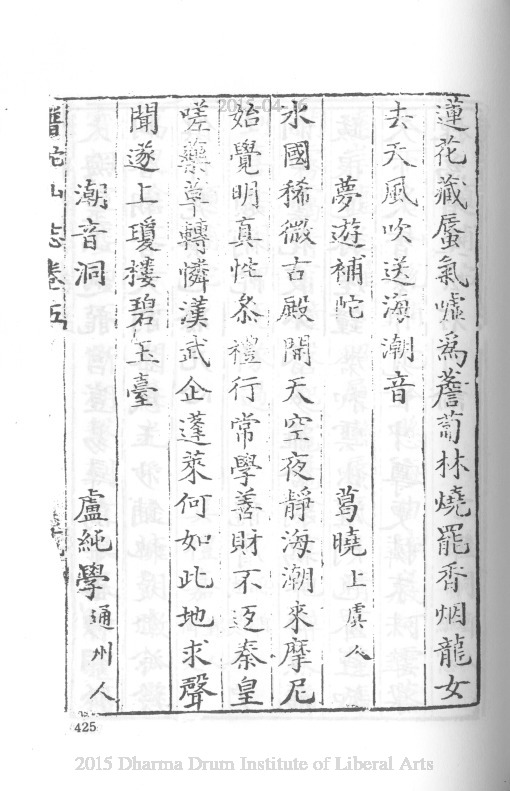 2015-04-16
蓮花藏蜃氣噓為薝蔔林燒罷香烟龍女
去天風吹送海潮音
夢遊補陀 葛曉上虞人
水國稀微古殿開天空夜靜海潮来摩尼
始覺明真性叅禮行常學善財不逐秦皇
嗟藥草轉憐漢武企蓬萊何如此地求聲
聞遂上瓊樓碧玉臺
潮音洞 盧純學通州人
普陀山志卷五
425
2015 Dharma Drum Institute of Liberal Arts